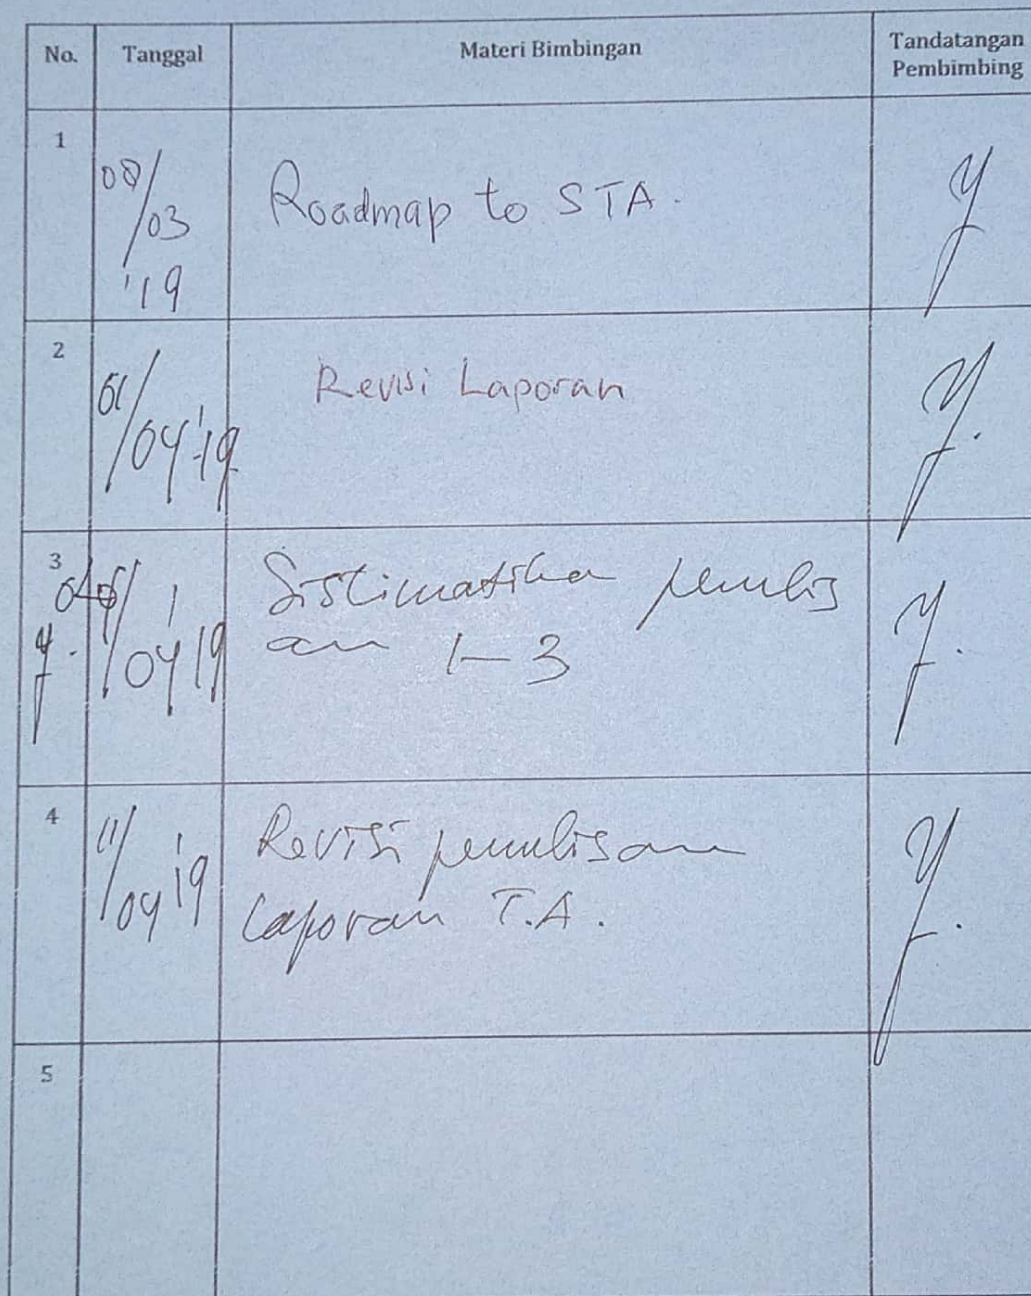 No. Tanggal Materi Bimbingan Tandatangan
Pembimbing
1
08/03 '19 Roadmap to STA.
2
01/04 '19 Revisi Laporan
3
/04 '19 Sistimatika penulis
an 1-3
4
11/04 '19 Revisi penulisan
Laporan T.A.
5